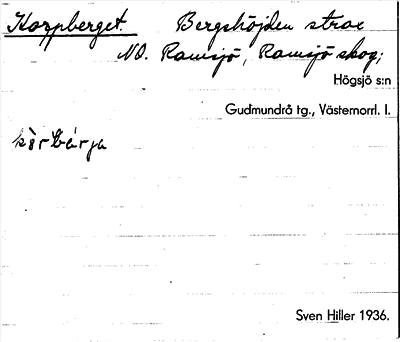 Korpberget. Bergshöjden strax
NO. Ramsjö, Ramsjö skog;
Högsjö s:n
Gudmundrå tg., Västernorrl. l.
Sven Hiller 1936.